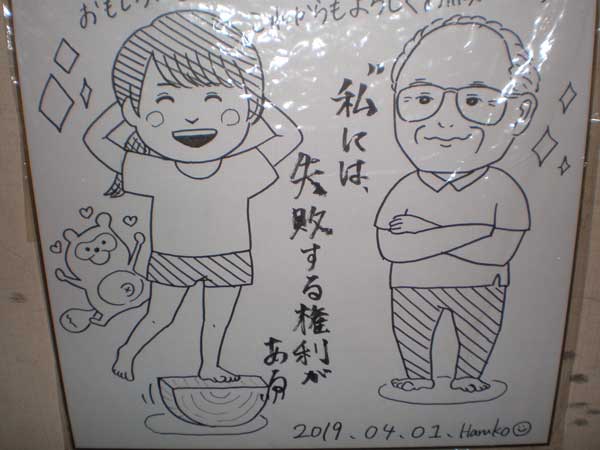 おもしろい
これからもよろしくお願
“私には、
失敗する権利が
ある„
2019.04.01. Haruko